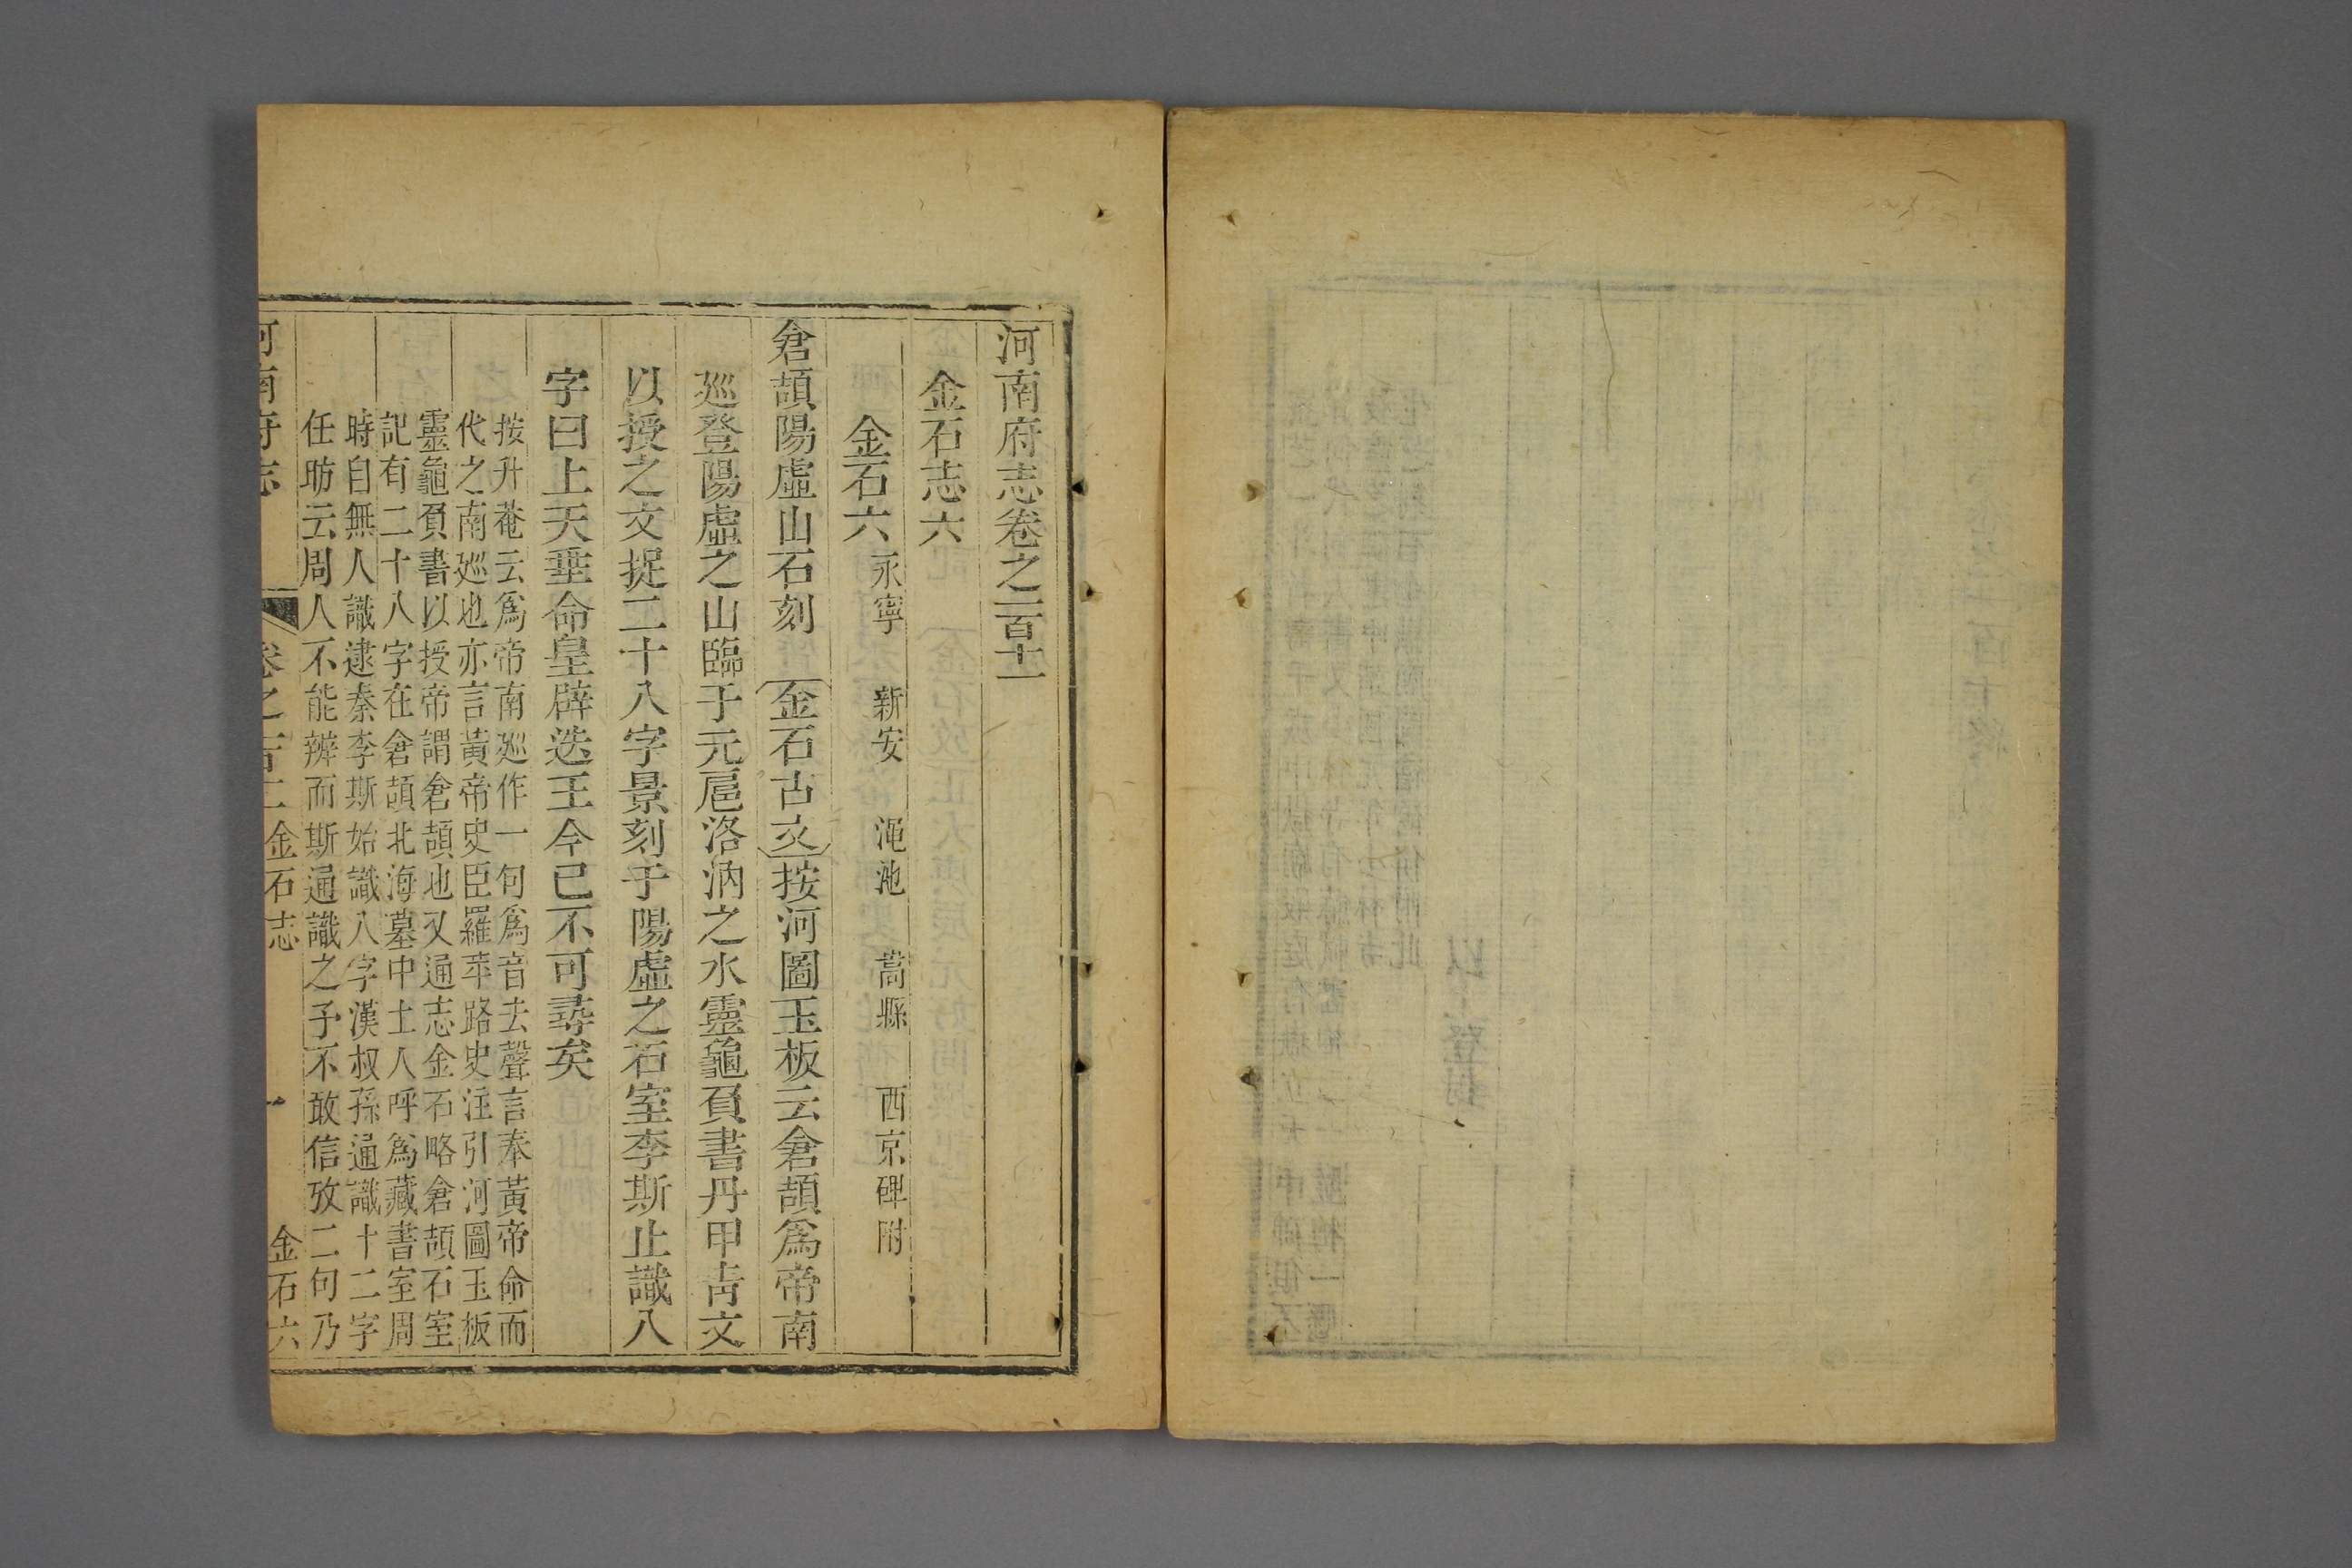 河南府志卷之一百十一
金石志六
金石六 永寧 新安 澠池 嵩縣 西京碑附
倉頡陽虛山石刻 金石古文 按河圖玉板云倉頡爲帝南
廵登陽虛之山臨于元扈洛汭之水靈龜負書丹甲靑文
以授之文捉二十八字景刻于陽虛之石室李斯止識八
字曰上天垂命皇辟迭王今已不可尋矣
按升菴云爲帝南廵作一句爲音去聲言奉黃帝命而
代之南廵也亦言黃帝史臣羅苹路史注引河圖玉板
靈龜負書以授帝謂倉頡也又通志金石略倉頡石室
記有二十八字在倉頡北海墓中土人呼爲藏書室周
時自無人識逮秦李斯始識八字漢叔孫通識十二字
任昉云周人不能辨而斯通識之予不敢信攷二句乃
河南府志 卷之一百十一 金石志 一 金石六